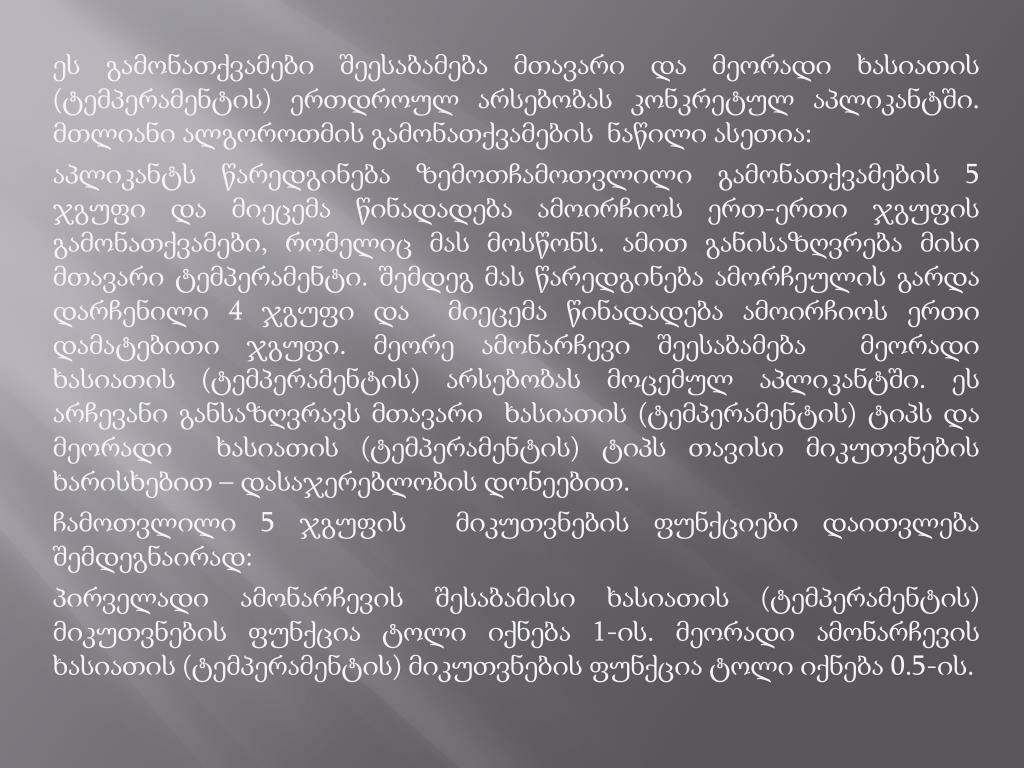 ეს გამონათქვამები შეესაბამება მთავარი და მეორადი ხასიათის
(ტემპერამენტის) ერთდროულ არსებობას კონკრეტულ აპლიკანტში.
მთლიანი ალგოროთმის გამონათქვამების ნაწილი ასეთია:
აპლიკანტს წარედგინება ზემოთჩამოთვლილი გამონათქვამების 5
ჯგუფი და მიეცემა წინადადება ამოირჩიოს ერთ-ერთი ჯგუფის
გამონათქვამები, რომელიც მას მოსწონს. ამით განისაზღვრება მისი
მთავარი ტემპერამენტი. შემდეგ მას წარედგინება ამორჩეულის გარდა
დარჩენილი 4 ჯგუფი და მიეცემა წინადადება ამოირჩიოს ერთი
დამატებითი ჯგუფი. მეორე ამონარჩევი შეესაბამება მეორადი
ხასიათის (ტემპერამენტის) არსებობას მოცემულ აპლიკანტში. ეს
არჩევანი განსაზღვრავს მთავარი ხასიათის (ტემპერამენტის) ტიპს და
მეორადი ხასიათის (ტემპერამენტის) ტიპს თავისი მიკუთვნების
ხარისხებით – დასაჯერებლობის დონეებით.
ჩამოთვლილი 5 ჯგუფის მიკუთვნების ფუნქციები დაითვლება
შემდეგნაირად:
პირველადი ამონარჩევის შესაბამისი ხასიათის (ტემპერამენტის)
მიკუთვნების ფუნქცია ტოლი იქნება 1-ის. მეორადი ამონარჩევის
ხასიათის (ტემპერამენტის) მიკუთვნების ფუნქცია ტოლი იქნება 0.5-ის.